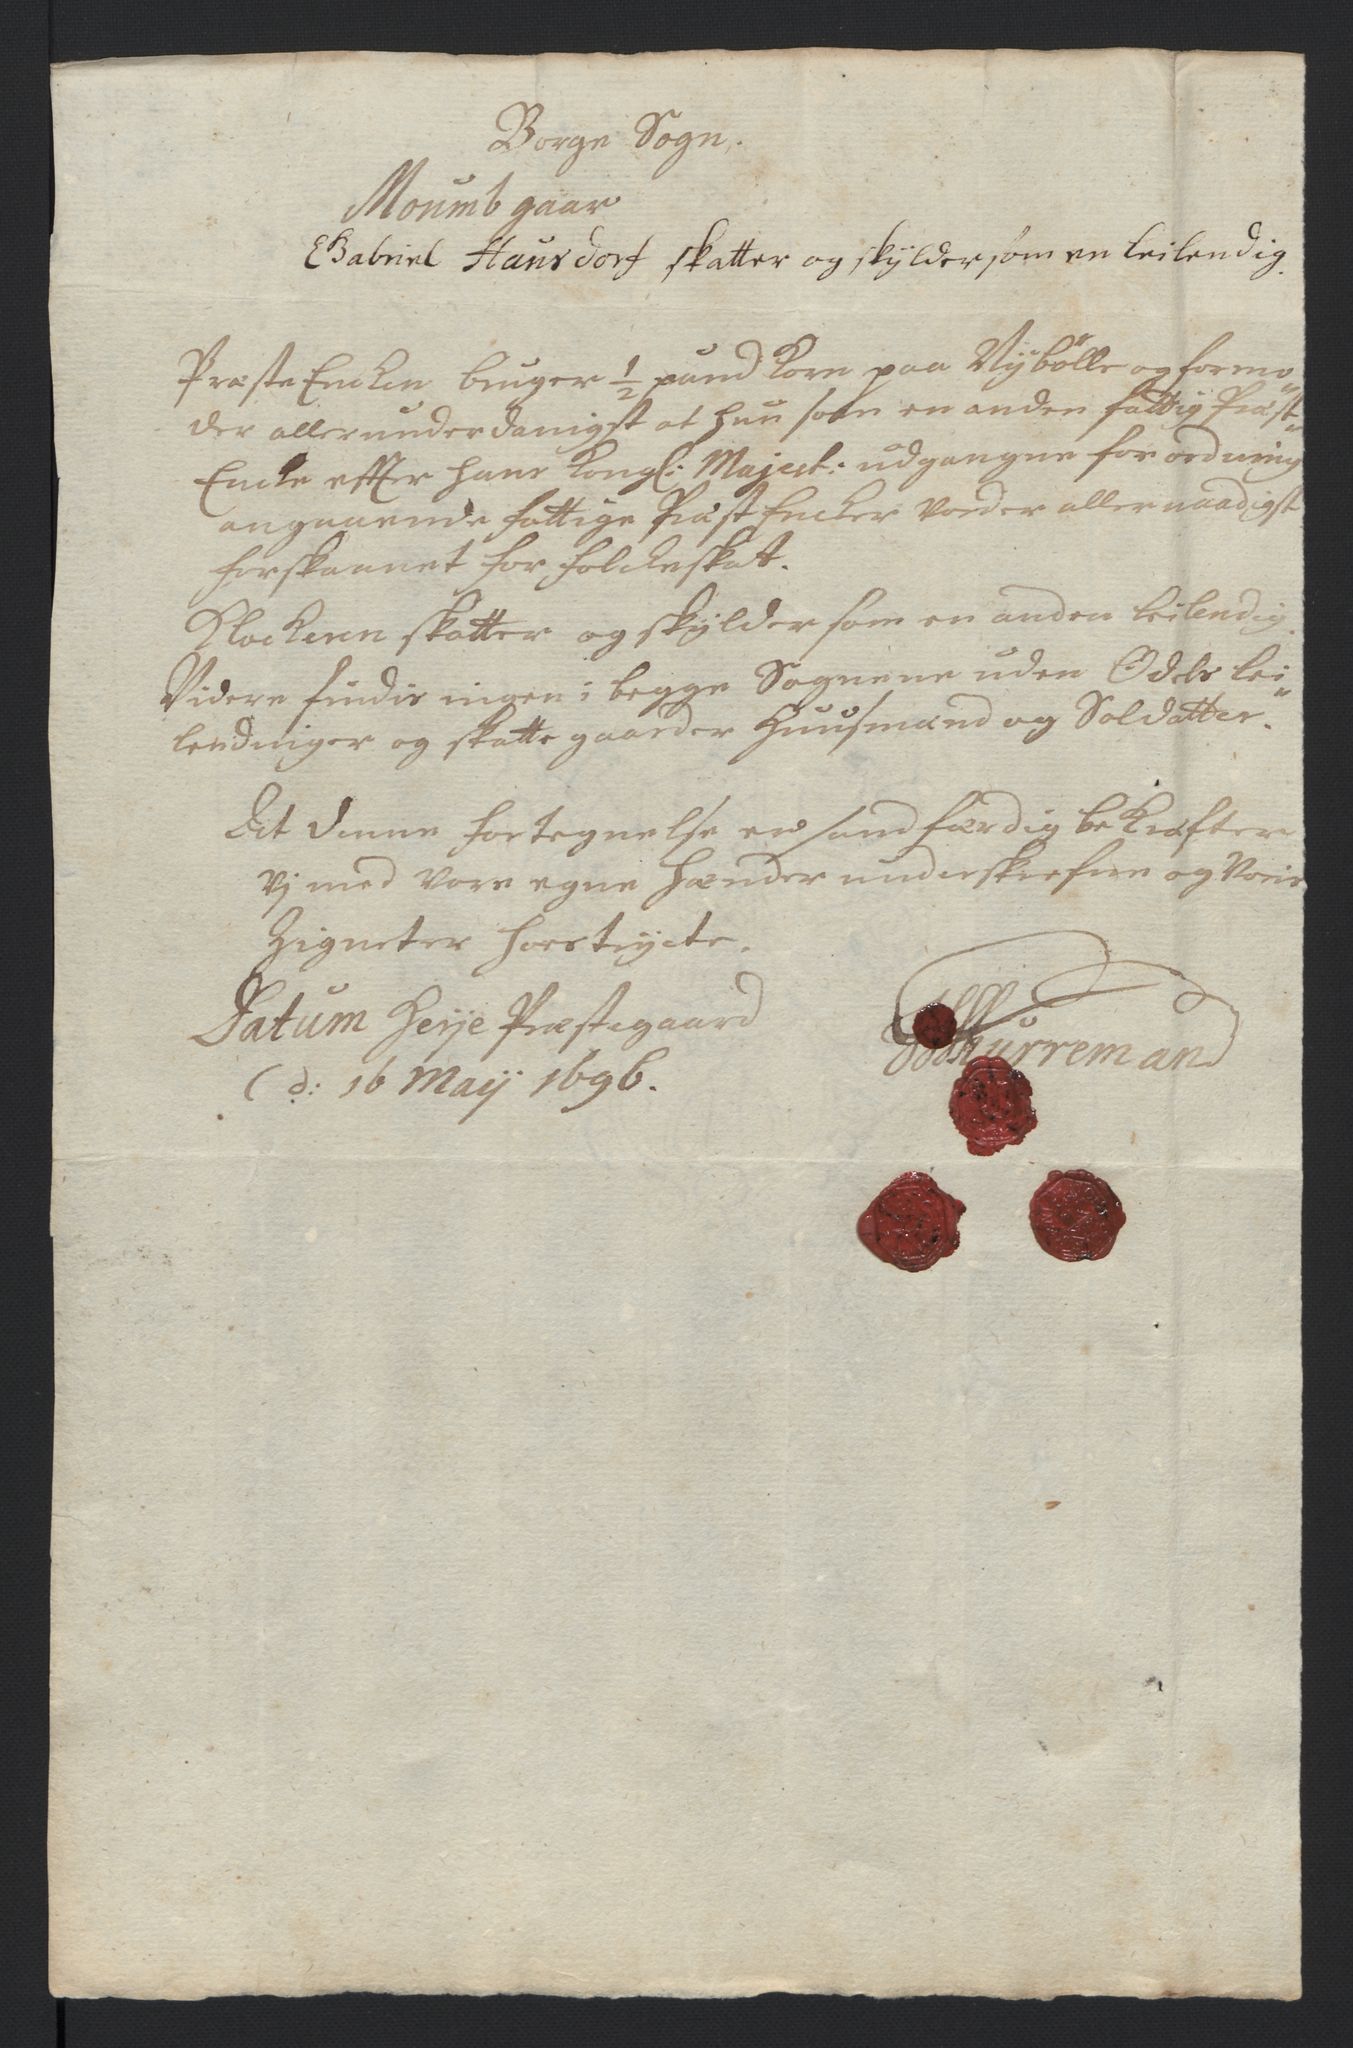 Borge Sogn.
Moumb gaar
Gabriel Hausdorf skatter og skylder som en leilendig.
Præste Encken bruger ½ pund Korn paa Nÿbølle og formo
der allerunderdanigst at hun som en anden fattig Præst=
Encke efter hans Kongl: Majest: udgangne forordning
angaaende fattige Præst Encker vorder allernaadigst
forskaanet for folckeskat.
Klockeren skatter og skylder som en anden leilendig.
Videre findis ingen i begge Sognene uden Odels lei=
lendinger og skatte gaarder Huusmænd og Soldatter.
At denne fortegnelse er sandfærdig bekræfter
vj med vore egne hænder underskrefne og voris
Zigneter hostryckte.
Datum Herje Præstegaard
d: 16 Maij 1696.
Hurreman